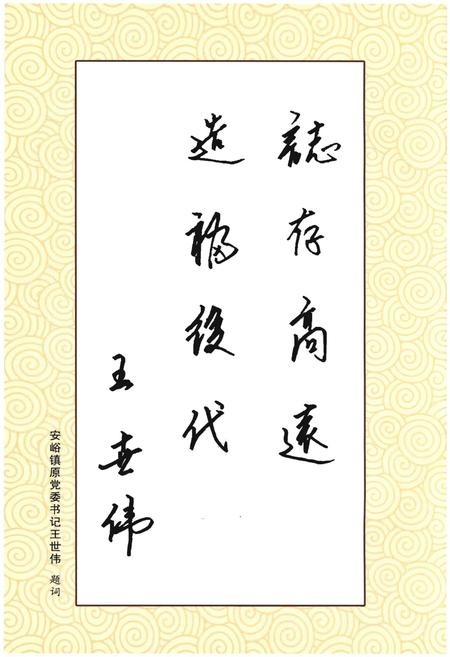 誌存高遠
造福後代
王世伟
安峪镇原党委书记王世伟 题词